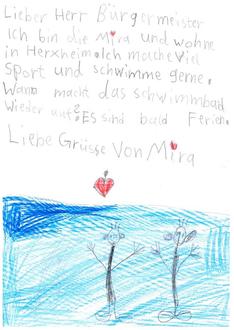 Lieber Herr Bürgermeister
ich bin die Mira und wohne
in Herxheim. Ich mache viel
Sport und schwimme gerne.
Wann macht das schwimmbad
Wieder auf? Es sind bald Ferien.
Liebe Grüsse Von Mira